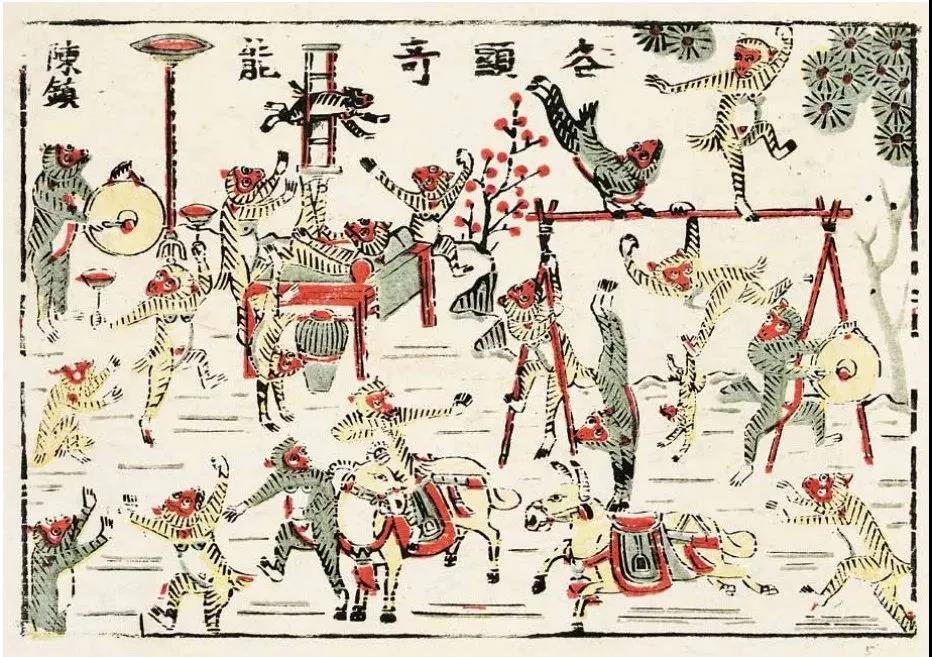 各顕奇能
陳鎮